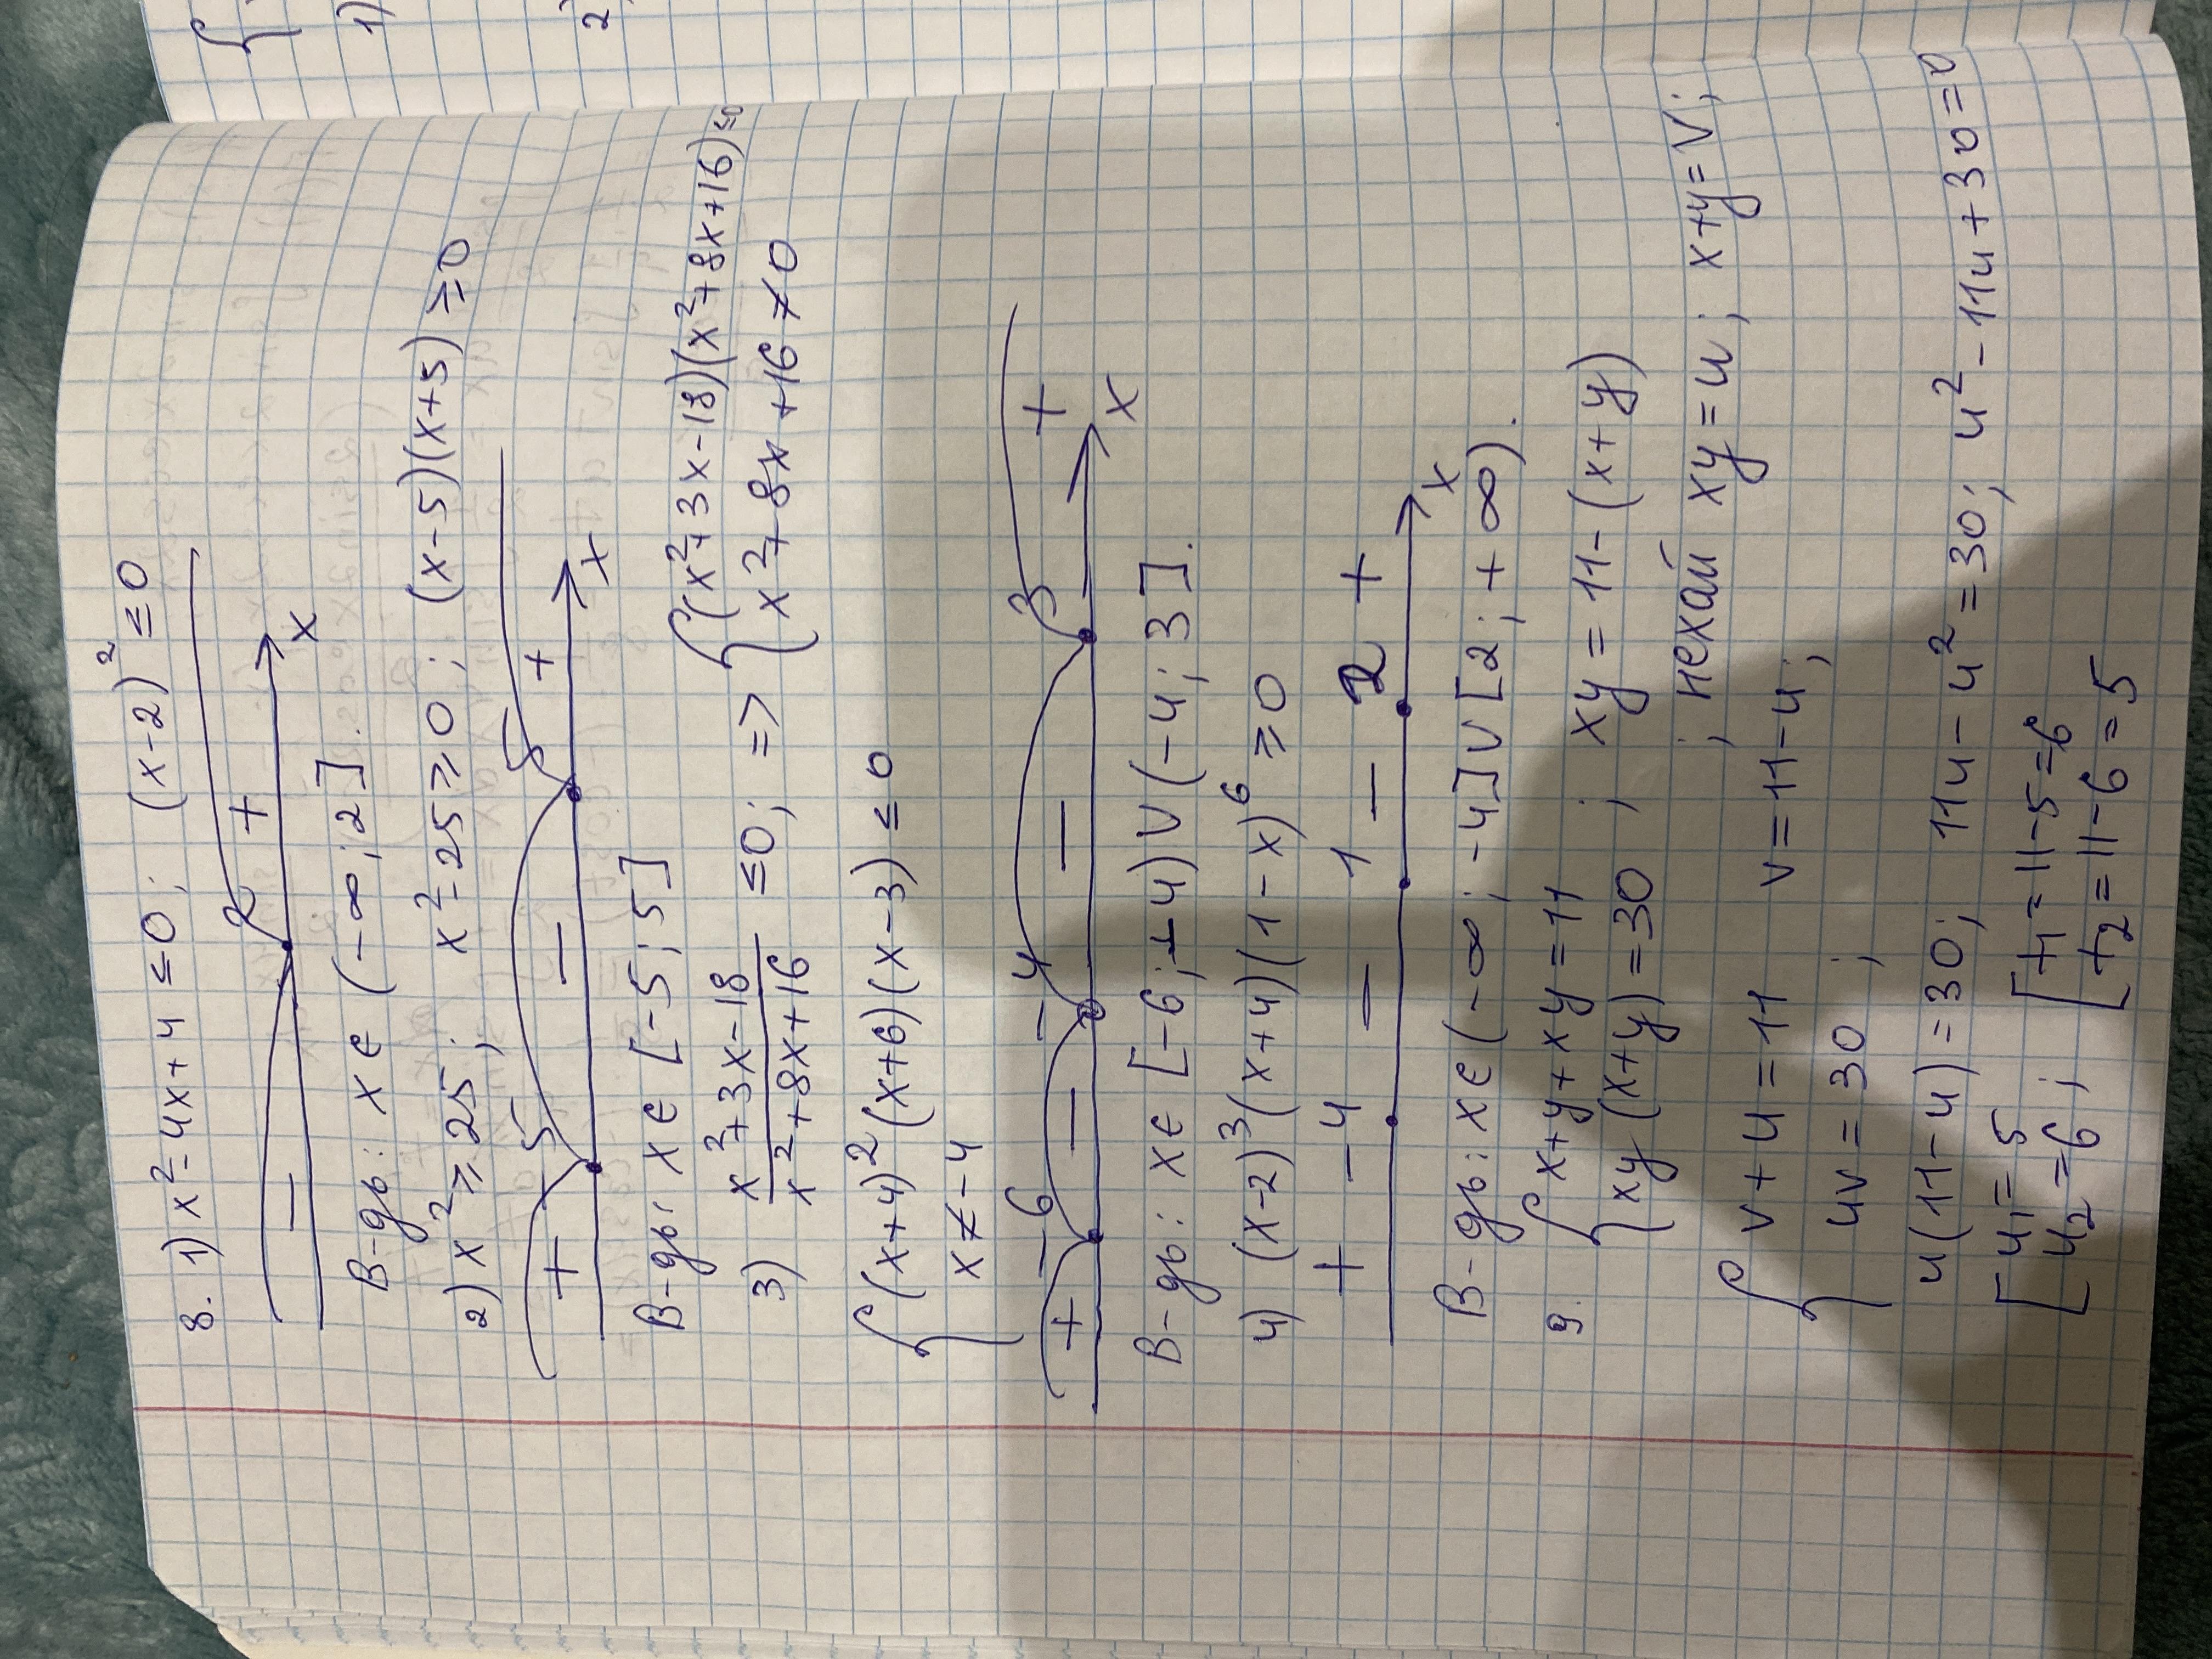 8. 1) x² - 4x + 4 ≤ 0; (x-2)² ≤ 0
− 2 + x
В-дь: x ∈ (-∞; 2].
2) x² ≥ 25; x² - 25 ≥ 0; (x-5)(x+5) ≥ 0
+ -5 − 5 + x
В-дь: x ∈ [-5; 5]
3) (x²+3x-18)/(x²+8x+16) ≤ 0; => { (x²+3x-18)(x²+8x+16) ≤ 0
x²+8x+16 ≠ 0
{ (x+4)²(x+6)(x-3) ≤ 0
x ≠ -4
+ -6 − -4 − 3 + x
В-дь: x ∈ [-6; -4) U (-4; 3].
4) (x-2)³(x+4)(1-x)⁶ ≥ 0
+ -4 − 1 − 2 + x
В-дь: x ∈ (-∞; -4] U [2; +∞).
9. { x+y+xy = 11 ; xy = 11-(x+y)
xy(x+y) = 30 ; нехай xy = u; x+y = v;
{ v+u = 11 v = 11-u;
uv = 30 ;
u(11-u) = 30; 11u - u² = 30; u² - 11u + 30 = 0
[ u₁ = 5 [ t₁ = 11-5 = 6
u₂ = 6; t₂ = 11-6 = 5
1)
2)